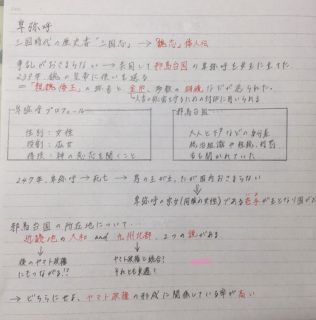 卑弥呼
三国時代の歴史書「三国志」→「魏志」倭人伝
争乱がおさまらない → 共同して邪馬台国の卑弥呼を女王に立てた。
239年、魏の皇帝に使いを送る
⇒「親魏倭王」の称号と金印、多数の銅鏡などが送られた。
卑弥呼プロフィール
性別：女性
役割：巫女
特徴：神の意志を聞くこと
邪馬台国
大人と下戸などの身分差
統治組織や租税、
も開かれていた
247年、卑弥呼 → 死亡 → 男の王が立ったが国内おさまらない
卑弥呼の宗女(同族の女性)である壱与が王となり国が
邪馬台国の所在地について…
近畿地方の大和 and 九州北部、2つの説がある。
後のヤマト政権にもつながる!!
ヤマト政権と統合!
それとも東遷!
→ どちらにせよ、ヤマト政権の形成に関係している率が高い